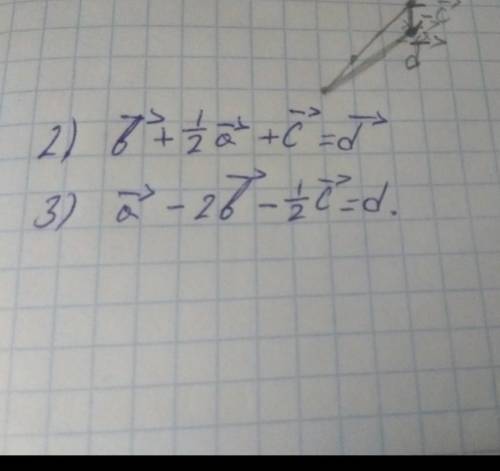 d⃗
2) b⃗ + ½ a⃗ + c⃗ = d⃗
3) a⃗ - 2b⃗ - ½ c⃗ = d.